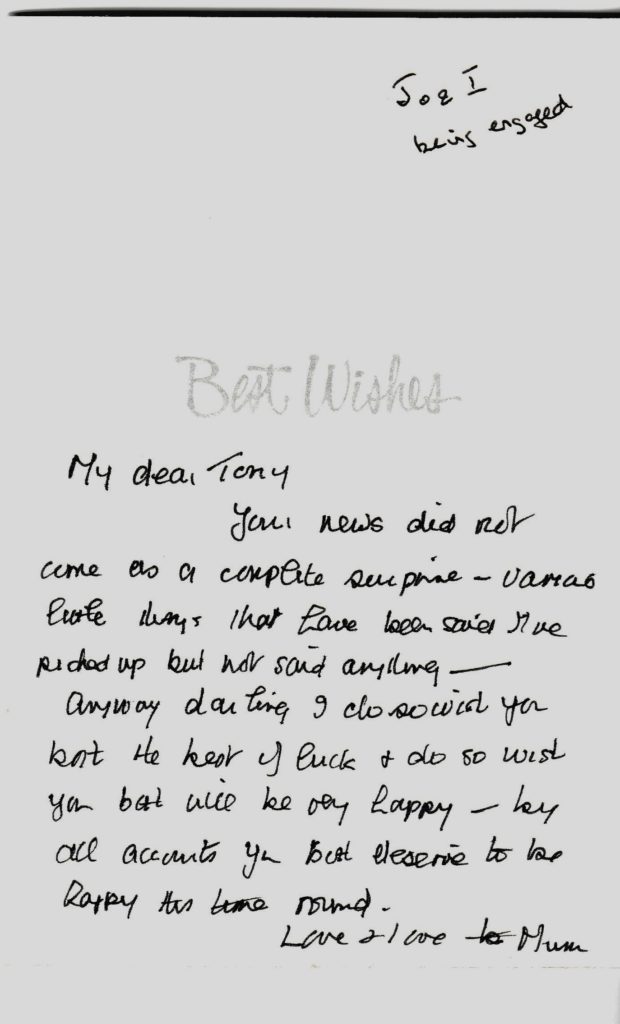 Jo & I
being engaged
Best Wishes
My dear Tony
Your news did not
come as a complete surprise – various
little things that have been said I've
picked up but not said anything —
Anyway darling I do so wish you
both the best of luck & do so wish
you both will be very happy – by
all accounts you both deserve to be
happy this time round.
Love & love Mum